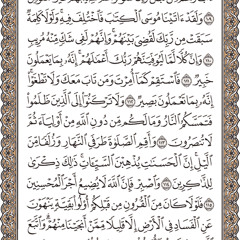 وَلَقَدْ ءَاتَيْنَا مُوسَى ٱلْكِتَٰبَ فَٱخْتُلِفَ فِيهِ وَلَوْلَا كَلِمَةٌ
سَبَقَتْ مِن رَّبِّكَ لَقُضِىَ بَيْنَهُمْ وَإِنَّهُمْ لَفِى شَكٍّ مِّنْهُ مُرِيبٍ
١١٠ وَإِنَّ كُلًّا لَّمَّا لَيُوَفِّيَنَّهُمْ رَبُّكَ أَعْمَٰلَهُمْ إِنَّهُۥ بِمَا يَعْمَلُونَ
خَبِيرٌ ١١١ فَٱسْتَقِمْ كَمَآ أُمِرْتَ وَمَن تَابَ مَعَكَ وَلَا تَطْغَوْا۟
إِنَّهُۥ بِمَا تَعْمَلُونَ بَصِيرٌ ١١٢ وَلَا تَرْكَنُوٓا۟ إِلَى ٱلَّذِينَ ظَلَمُوا۟
فَتَمَسَّكُمُ ٱلنَّارُ وَمَا لَكُم مِّن دُونِ ٱللَّهِ مِنْ أَوْلِيَآءَ ثُمَّ
لَا تُنصَرُونَ ١١٣ وَأَقِمِ ٱلصَّلَوٰةَ طَرَفَىِ ٱلنَّهَارِ وَزُلَفًا مِّنَ
ٱلَّيْلِ إِنَّ ٱلْحَسَنَٰتِ يُذْهِبْنَ ٱلسَّيِّـَٔاتِ ذَٰلِكَ ذِكْرَىٰ
لِلذَّٰكِرِينَ ١١٤ وَٱصْبِرْ فَإِنَّ ٱللَّهَ لَا يُضِيعُ أَجْرَ ٱلْمُحْسِنِينَ
١١٥ فَلَوْلَا كَانَ مِنَ ٱلْقُرُونِ مِن قَبْلِكُمْ أُو۟لُوا۟ بَقِيَّةٍ يَنْهَوْنَ
عَنِ ٱلْفَسَادِ فِى ٱلْأَرْضِ إِلَّا قَلِيلًا مِّمَّنْ أَنجَيْنَا مِنْهُمْ وَٱتَّبَعَ